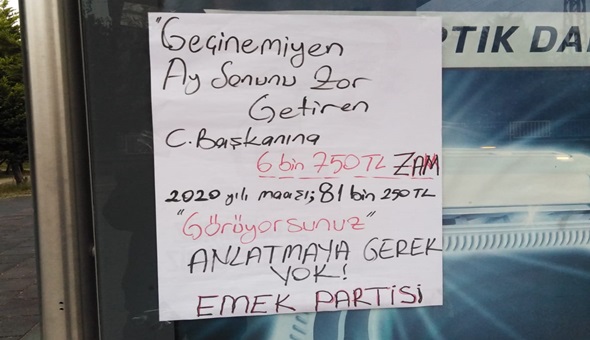 "Geçinemiyen
Ay Sonunu Zor
Getiren
C. Başkanına
6 bin 750 TL ZAM
2020 yılı maaşı; 81 bin 250 TL
"Görüyorsunuz"
ANLATMAYA GEREK
YOK!
EMEK PARTİSİ
PTIK DA